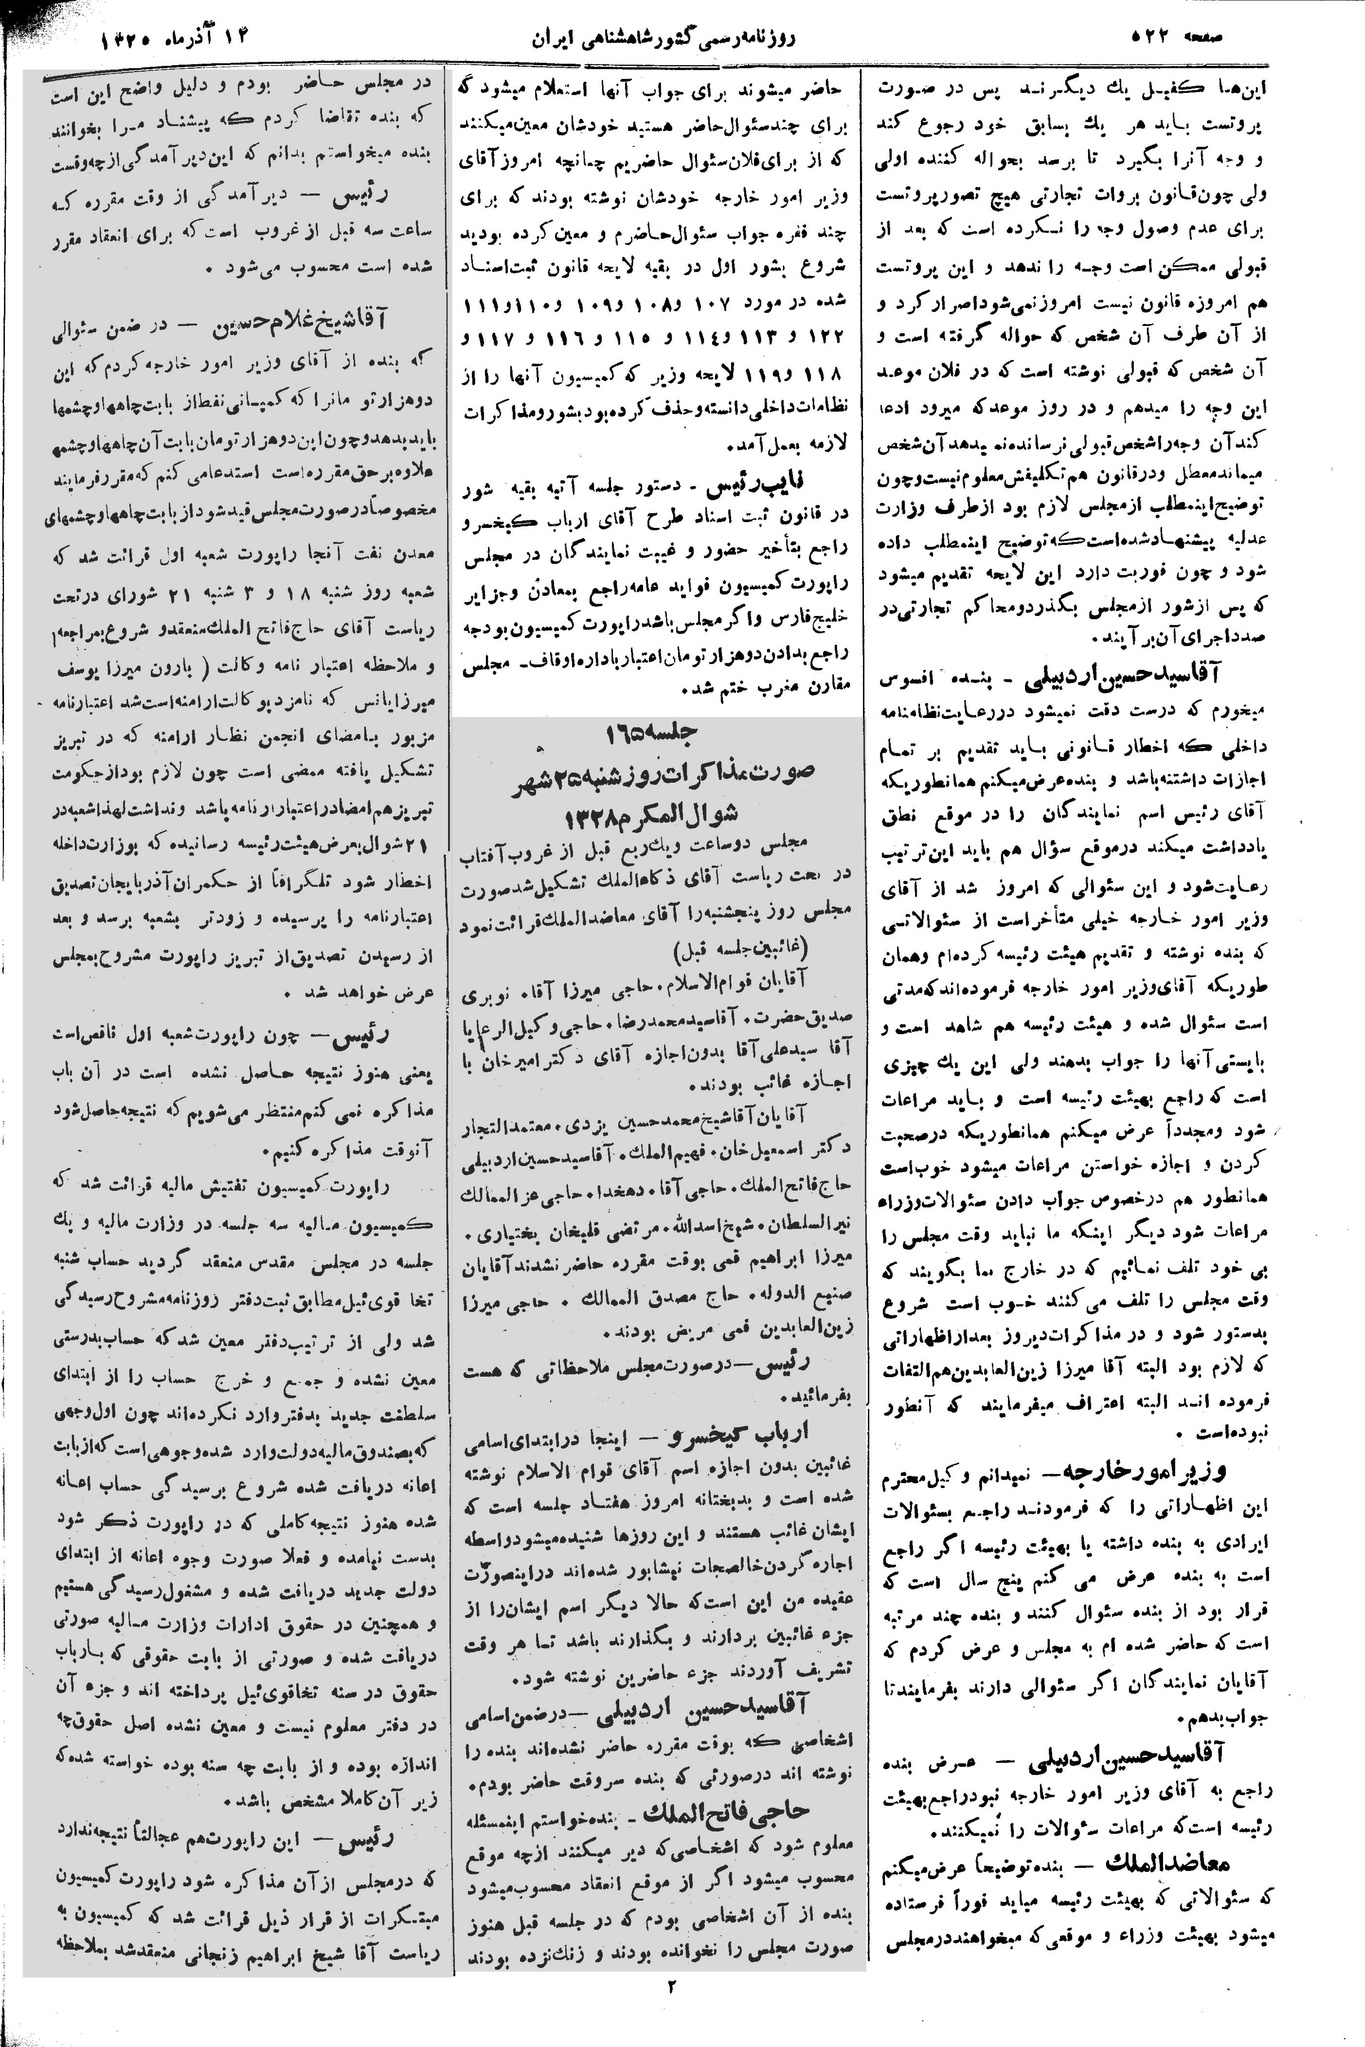 صفحه ۵۲۲
روزنامه رسمی کشور شاهنشاهی ایران
۱۴ آذر ماه ۱۳۲۵
این‌ها کفیل یك دیگرند پس در صورت
پروتست باید هر یك بسابق خود رجوع کند
و وجه آنرا بگیرد تا برسد بحواله کننده اولی
ولی چون قانون بروات تجارتی هیچ تصور پروتست
برای عدم وصول وجه را نکرده است که بعد از
قبولی ممکن است وجه را ندهد و این پروتست
هم امروزه قانون نیست امروز نمی‌شود اصرار کرد و
از آن طرف آن شخص که حواله گرفته است و
آن شخص که قبولی نوشته است که در فلان موعد
این وجه را میدهم و در روز موعد که میرود ادعا
کند آن وجه را شخص قبولی نرسانده نمیدهد آن شخص
میماند معطل و در قانون هم تکلیفش معلوم نیست و چون
توضیح اینمطلب از مجلس لازم بود از طرف وزارت
عدلیه پیشنهاد شده است که توضیح اینمطلب داده
شود و چون فوریت دارد این لایحه تقدیم میشود
که پس از شور از مجلس بگذرد و محاکم تجارتی در
صدد اجرای آن برآیند.
آقا سید حسین اردبیلی - بنده افسوس
میخورم که درست دقت نمیشود در رعایت نظامنامه
داخلی که اخطار قانونی باید تقدیم بر تمام
اجازات داشته باشد و بنده عرض میکنم همانطوریکه
آقای رئیس اسم نمایندگان را در موقع نطق
یادداشت میکند در موقع سؤال هم باید این ترتیب
رعایت شود و این سئوالی که امروز شد از آقای
وزیر امور خارجه خیلی متأخر است از سئوالاتسی
که بنده نوشته و تقدیم هیئت رئیسه کرده‌ام و همان
طوریکه آقای وزیر امور خارجه فرموده‌اند که مدتی
است سئوال شده و هیئت رئیسه هم شاهد است و
بایستی آنها را جواب بدهند ولی این یك چیزی
است که راجع بهیئت رئیسه است و باید مراعات
شود و مجدداً عرض میکنم همانطوریکه در صحبت
کردن و اجازه خواستن مراعات میشود خوب است
همانطور هم در خصوص جواب دادن سئوالات وزراء
مراعات شود دیگر اینکه ما نباید وقت مجلس را
بی خود تلف نمائیم که در خارج بما بگویند که
وقت مجلس را تلف می‌کنند خوب است شروع
بدستور شود و در مذاکرات دیروز بعد از اظهاراتی
که لازم بود البته آقا میرزا زین‌العابدین هم التفات
فرموده اند البته اعتراف میفرمایند که آنطور
نبوده است .
وزیر امور خارجه — نمیدانم وکیل محترم
این اظهاراتی را که فرمودند راجع بسئوالات
ایرادی به بنده داشته یا بهیئت رئیسه اگر راجع
است به بنده عرض می کنم پنج سال است که
قرار بود از بنده سئوال کنند و بنده چند مرتبه
است که حاضر شده ام به مجلس و عرض کردم که
آقایان نمایندگان اگر سئوالی دارند بفرمایند تا
جواب بدهم.
آقا سید حسین اردبیلی — عرض بنده
راجع به آقای وزیر امور خارجه نبود راجع بهیئت
رئیسه است که مراعات سئوالات را نمیکنند.
معاضد الملك — بنده توضیحاً عرض میکنم
که سئوالاتی که بهیئت رئیسه میاید فوراً فرستاده
میشود بهیئت وزراء و موقعی که میخواهند در مجلس
حاضر میشوند برای جواب آنها استعلام میشود که
برای چند سئوال حاضر هستید خودشان معین میکنند
که از برای فلان سئوال حاضریم چنانچه امروز آقای
وزیر امور خارجه خودشان نوشته بودند که برای
چند فقره جواب سئوال حاضرم و معین کرده بودید
شروع بشور اول در بقیه لایحه قانون ثبت اسناد
شده در مورد ۱۰۷ و ۱۰۸ و ۱۰۹ و ۱۱۰ و ۱۱۱
۱۲۲ و ۱۱۳ و ۱۱٤ و ۱۱۵ و ۱۱٦ و ۱۱۷ و
۱۱۸ و ۱۱۹ لایحه وزیر که کمیسیون آنها را از
نظامات داخلی دانسته و حذف کرده بود بشور و مذاکرات
لازمه بعمل آمد.
نایب رئیس - دستور جلسه آتیه بقیه شور
در قانون ثبت اسناد طرح آقای ارباب کیخسرو
راجع بتأخیر حضور و غیبت نمایندگان در مجلس
راپورت کمیسیون فواید عامه راجع بمعادن و جزایر
خلیج فارس و اگر مجلس باشد راپورت کمیسیون بودجه
راجع بدادن دو هزار تومان اعتبار باداره اوقاف - مجلس
مقارن مغرب ختم شد.
جلسه ۱٦۵
صورت مذاکرات روز شنبه ۲۵ شهر
شوال المکرم ۱۳۲۸
مجلس دو ساعت و یك ربع قبل از غروب آفتاب
در تحت ریاست آقای ذکاءالملك تشکیل شد صورت
مجلس روز پنجشنبه را آقای معاضد الملك قرائت نمود
(غائبین جلسه قبل)
آقایان قوام الاسلام . حاجی میرزا آقا . نوبری
صدیق حضرت . آقا سید محمد رضا . حاجی وکیل الرعایا
آقا سید علی آقا بدون اجازه آقای دکتر امیر خان با
اجازه غائب بودند.
آقایان آقا شیخ محمد حسین یزدی . معتمد التجار
دکتر اسمعیل خان . فهیم الملك . آقا سید حسین اردبیلی
حاج فاتح الملك . حاجی آقا . دهخدا . حاجی عز الممالك
نیر السلطان . شیخ اسدالله . مرتضی قلیخان بختیاری .
میرزا ابراهیم قمی بوقت مقرره حاضر نشدند آقایان
صنیع الدوله . حاج مصدق الممالك . حاجی میرزا
زین العابدین قمی مریض بودند.
رئیس — در صورت مجلس ملاحظاتی که هست
بفرمائید.
ارباب کیخسرو — اینجا در ابتدای اسامی
غائبین بدون اجازه اسم آقای قوام الاسلام نوشته
شده است و بدبختانه امروز هفتاد جلسه است که
ایشان غائب هستند و این روزها شنیده میشود واسطه
اجاره کردن خالصجات نیشابور شده‌اند در اینصورت
عقیده من این است که حالا دیگر اسم ایشان را از
جزء غائبین بردارند و بگذارند باشد تا هر وقت
تشریف آوردند جزء حاضرین نوشته شود.
آقا سید حسین اردبیلی — در ضمن اسامی
اشخاصی که بوقت مقرره حاضر نشده‌اند بنده را
نوشته اند در صورتی که بنده سر وقت حاضر بودم.
حاجی فاتح الملك - بنده خواستم اینمسئله
معلوم شود که اشخاصی که دیر میکنند از چه موقع
محسوب میشود اگر از موقع انعقاد محسوب میشود
بنده از آن اشخاصی بودم که در جلسه قبل هنوز
صورت مجلس را نخوانده بودند و زنك نزده بودند
در مجلس حاضر بودم و دلیل واضح این است
که بنده تقاضا کردم که پیشنهاد مرا بخوانند
بنده میخواستم بدانم که این دیر آمدگی از چه وقت
رئیس — دیر آمدگی از وقت مقرره که
ساعت سه قبل از غروب است که برای انعقاد مقرر
شده است محسوب می‌شود .
آقا شیخ غلام حسین — در ضمن سئوالی
که بنده از آقای وزیر امور خارجه کردم که این
دو هزار تومانرا که کمپانی نفط از بابت چاهها و چشمها
باید بدهد و چون این دو هزار تومان بابت آن چاهها و چشمها
علاوه بر حق مقرره است استدعا می کنم که مقرر فرمایند
مخصوصاً در صورت مجلس قید شود از بابت چاهها و چشمهای
معدن نفت آنجا راپورت شعبه اول قرائت شد که
شعبه روز شنبه ۱۸ و ۳ شنبه ۲۱ شورای در تحت
ریاست آقای حاج فاتح الملك منعقد و شروع بمراجعه
و ملاحظه اعتبار نامه وکالت ( بارون میرزا یوسف
میرزایانس که نامزد بوکالت ارامنه است شد اعتبارنامه
مزبور بامضای انجمن نظار ارامنه که در تبریز
تشکیل یافته ممضی است چون لازم بود از حکومت
تبریز هم امضا در اعتبارنامه باشد و نداشت لهذا شعبه در
۲۱ شوال بعرض هیئت رئیسه رسانیده که بوزارت داخله
اخطار شود تلگرافاً از حکمران آذربایجان تصدیق
اعتبارنامه را پرسیده و زودتر بشعبه برسد و بعد
از رسیدن تصدیق از تبریز راپورت مشروح بمجلس
عرض خواهد شد .
رئیس — چون راپورت شعبه اول ناقص است
یعنی هنوز نتیجه حاصل نشده است در آن باب
مذاکره نمی کنم منتظر می‌شویم که نتیجه حاصل شود
آنوقت مذاکره کنیم.
راپورت کمیسیون تفتیش مالیه قرائت شد که
کمیسیون مالیه سه جلسه در وزارت مالیه و یك
جلسه در مجلس مقدس منعقد گردید حساب شنبه
تخاقوی ئیل مطابق ثبت دفتر روزنامه مشروح رسیدگی
شد ولی از ترتیب دفتر معین شد که حساب بدرستی
معین نشده و جمع و خرج حساب را از ابتدای
سلطنت جدید بدفتر وارد نکرده‌اند چون اول وجهی
که بصندوق مالیه دولت وارد شده وجوهی است که از بابت
اعانه دریافت شده شروع برسیدگی حساب اعانه
شده هنوز نتیجه کاملی که در راپورت ذکر شود
بدست نیامده و فعلا صورت وجوه اعانه از ابتدای
دولت جدید دریافت شده و مشغول رسیدگی هستیم
و همچنین در حقوق ادارات وزارت مالیه صورتی
دریافت شده و صورتی از بابت حقوقی که بارباب
حقوق در سنه تخاقوی ئیل پرداخته اند و جزء آن
در دفتر معلوم نیست و معین نشده اصل حقوق چه
اندازه بوده و از بابت چه سنه بوده خواسته شده که
زیر آن کاملا مشخص باشد.
رئیس — این راپورت هم عجالتاً نتیجه ندارد
که در مجلس از آن مذاکره شود راپورت کمیسیون
مبتکرات از قرار ذیل قرائت شد که کمیسیون به
ریاست آقا شیخ ابراهیم زنجانی منعقد شد بملاحظه
۲